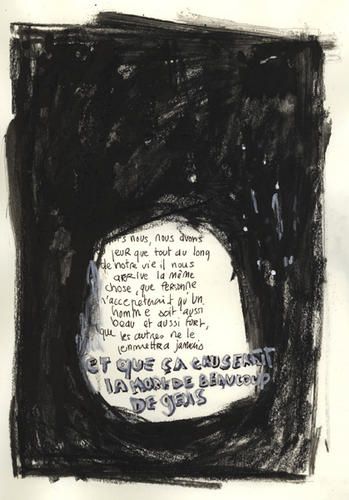 nous, nous avons
peur que tout au long
de notre vie il nous
arrive la même
chose, que personne
n'accepterait qu'un
homme soit aussi
beau et aussi fort,
que les autres ne le
permettra jamais
ET QUE ÇA CAUSERAIT
LA MORT DE BEAUCOUP
DE GENS